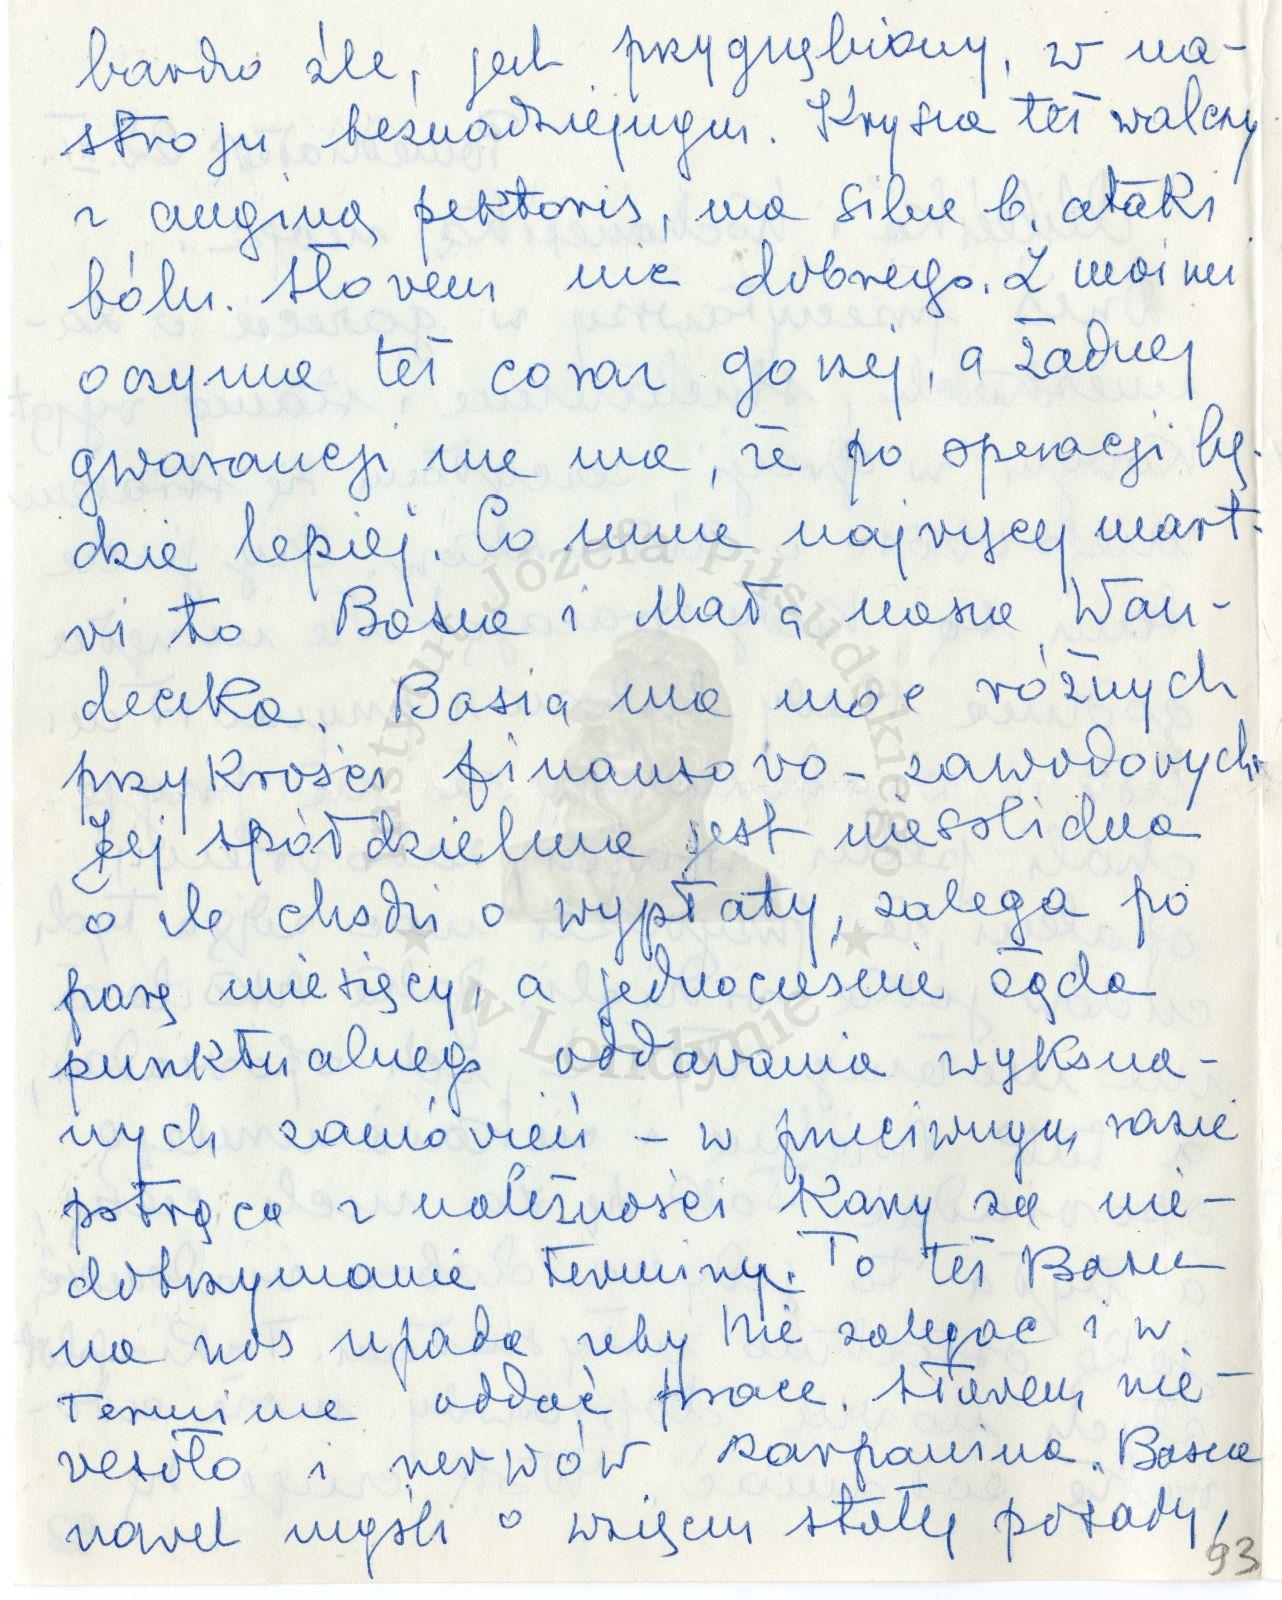 bardzo źle, jest przygnębiony, w na-
stroju beznadziejnym. Krysia też walczy
z anginą pektoris, ma silne b. ataki
bólu. Słowem nic dobrego. Z moimi
oczyma też coraz gorzej, a żadnej
gwarancji nie ma, że po operacji bę-
dzie lepiej. Co mnie najwięcej mart-
wi to Basia i Mała nasza Wan-
deczka. Basia ma moc różnych
przykrości finansowo-zawodowych.
Jej spółdzielnia jest niesolidna
o ile chodzi o wypłaty, zalega po
parę miesięcy, a jednocześnie żąda
punktualnego oddawania wykona-
nych zamówień - w przeciwnym razie
potrąca z należności kary za nie-
dotrzymanie terminu. To też Basia
na nos upada żeby nie zalegać i w
terminie oddać prace. Słowem nie-
wesoło i nerwów szarpanina. Basia
nawet myśli o wzięciu stałej posady,
93
Instytut Józefa Piłsudskiego
w Londynie